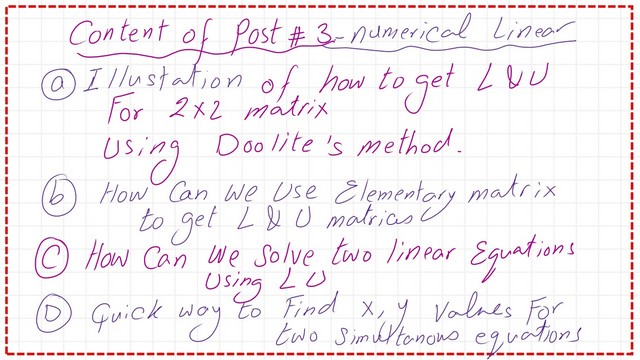 Content of Post # 3-numerical Linear
a Illustation of how to get L & U
For 2x2 matrix
Using Doolite's method.
b How Can We Use Elementary matrix
to get L & U matrices
C How Can We Solve two linear Equations
Using LU
D Quick way to Find x, y Values For
two simultanous equations